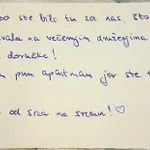 oo ste bili tu za nas, što
vala na večernjim druženjima
doručke!
pun apartman jer ste
od srca na srcu! ♡